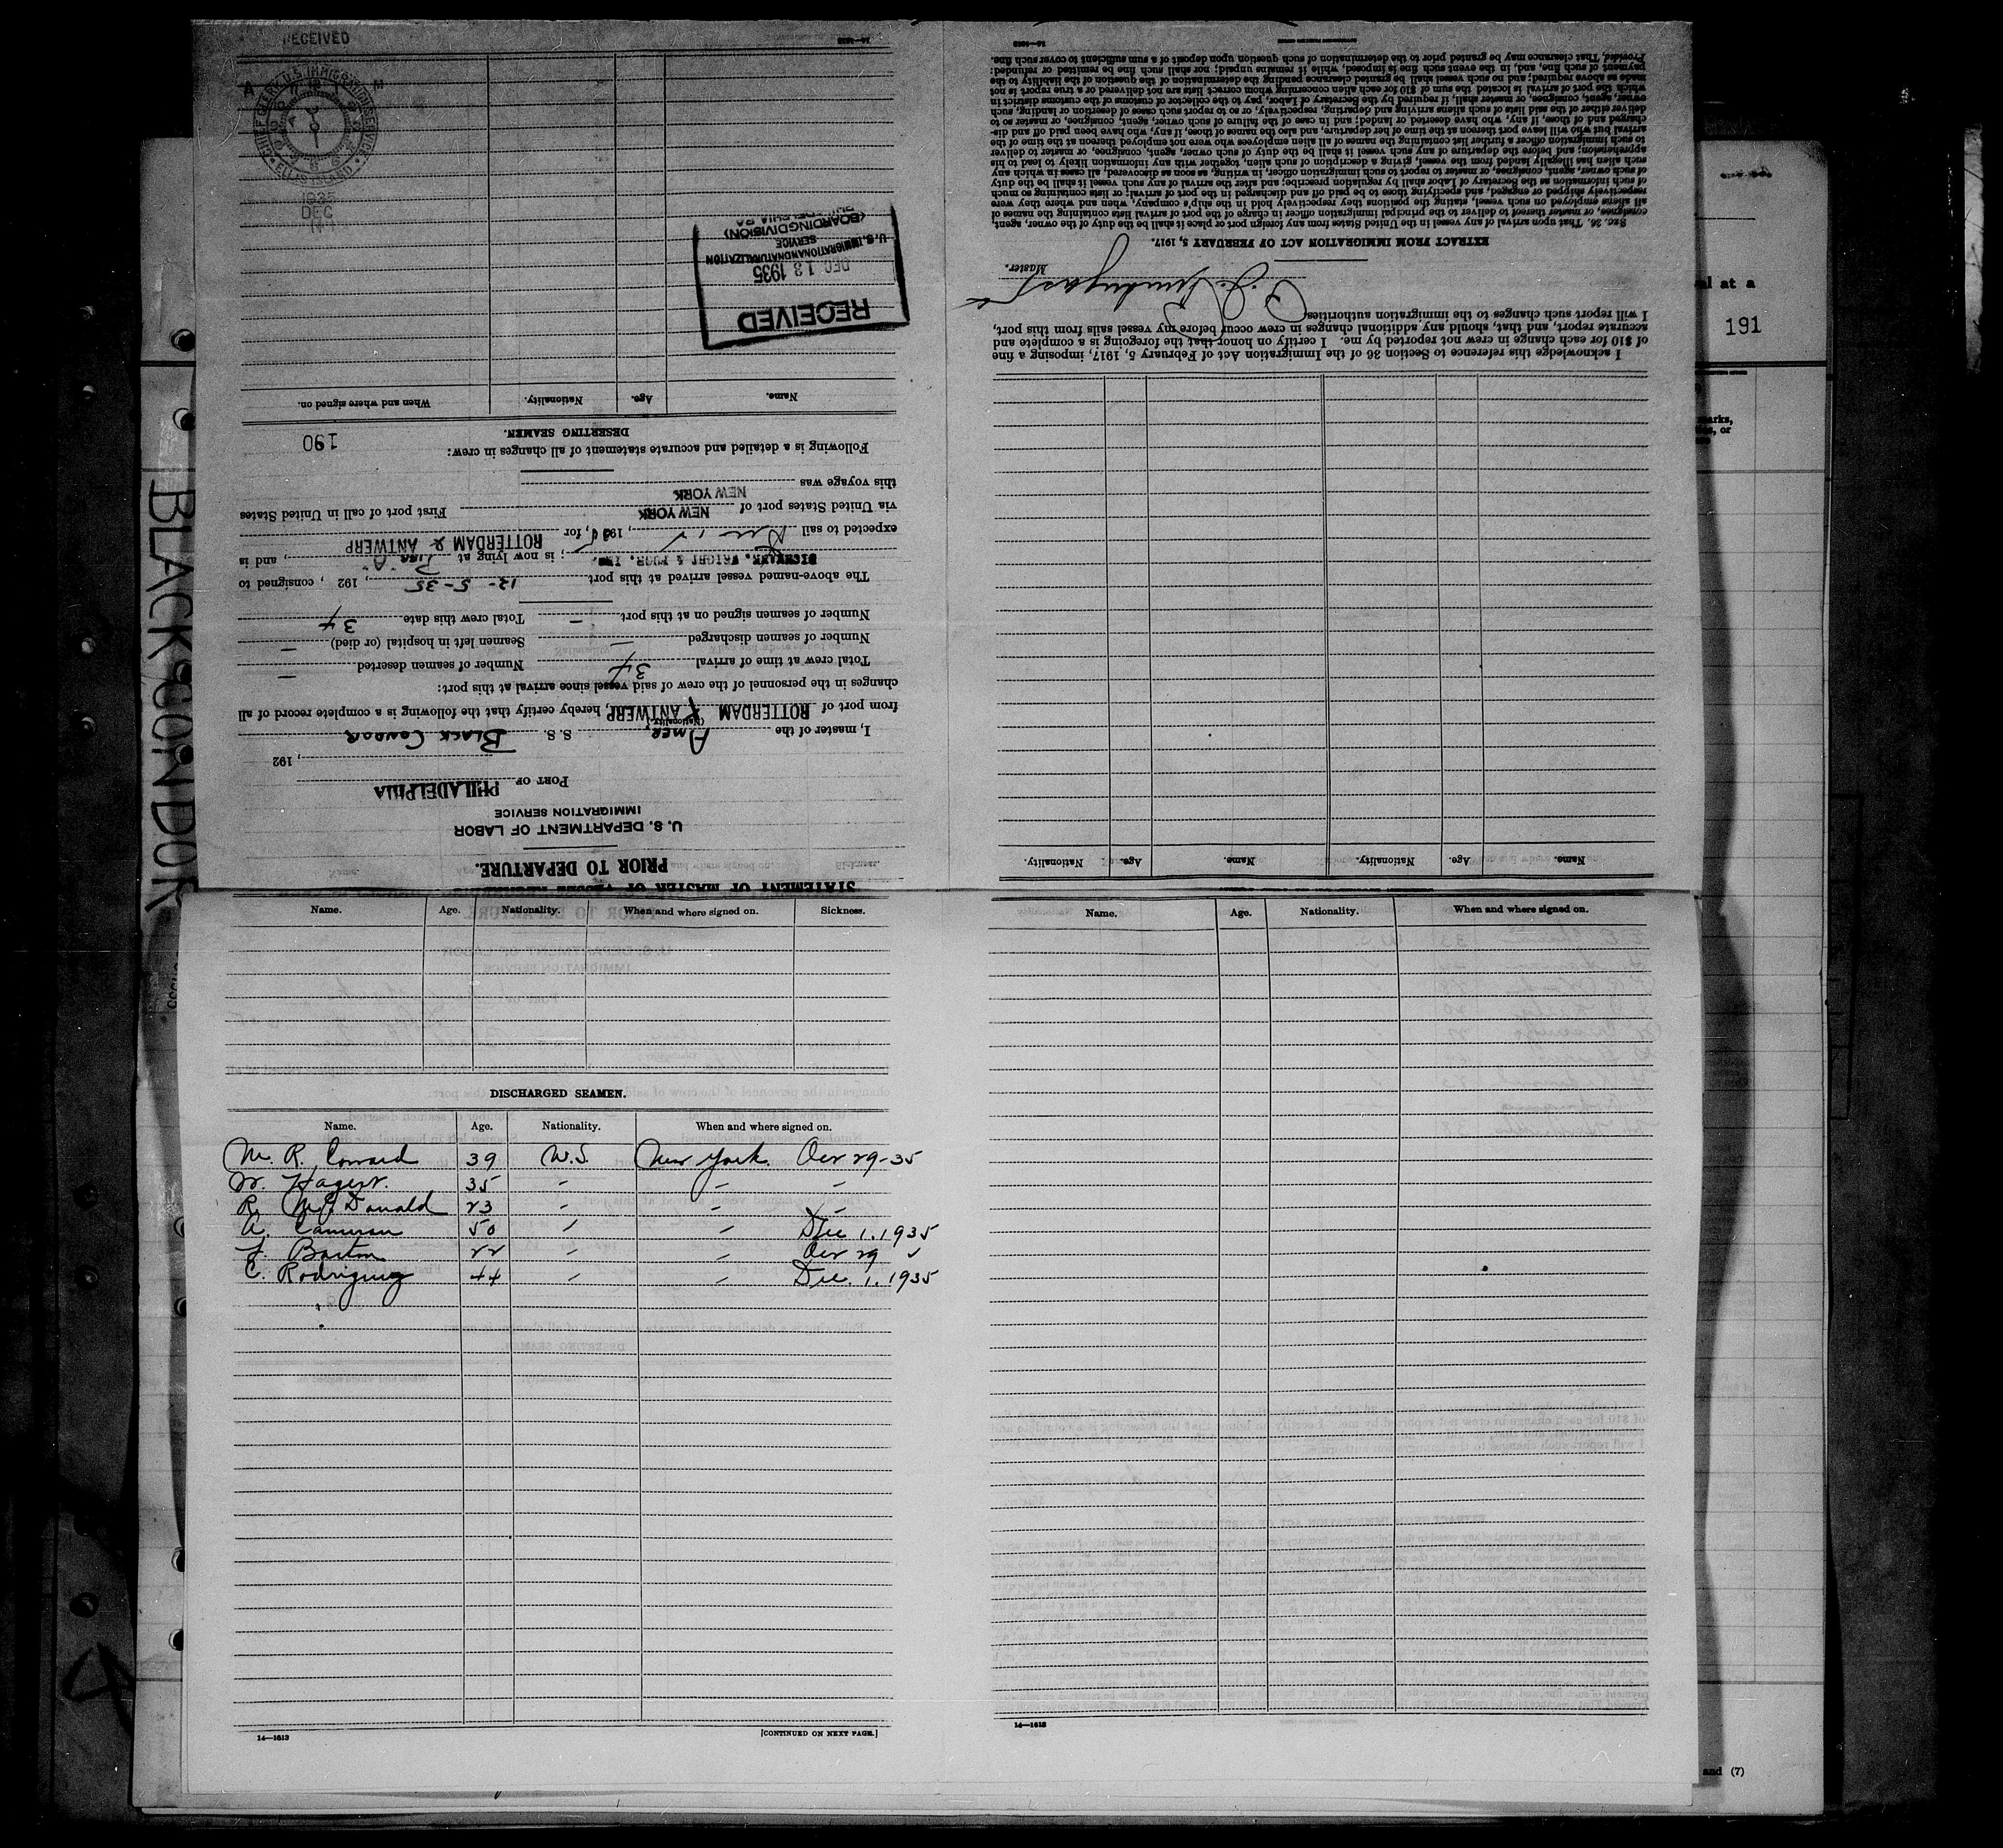 BLACK CONDOR
STATEMENT OF MASTER OF VESSEL REGARDING
PRIOR TO DEPARTURE.
U. S. DEPARTMENT OF LABOR
IMMIGRATION SERVICE
PORT OF PHILADELPHIA
, 192
I, master of the AMER. S. S. BLACK CONDOR
(Nationality)
from port of ROTTERDAM & ANTWERP, hereby certify that the following is a complete record of all
changes in the personnel of the crew of said vessel since arrival at this port:
Total crew at time of arrival 37 Number of seamen deserted —
Number of seamen discharged — Seamen left in hospital (or died) —
Number of seamen signed on at this port — Total crew this date 37
The above-named vessel arrived at this port 12-5-35, 192 , consigned to
; is now lying at PIER A, and is
expected to sail Dec 12, 1935, for ROTTERDAM & ANTWERP
via United States port of NEW YORK First port of call in United States
this voyage was NEW YORK
Following is a detailed and accurate statement of all changes in crew:
190
DESERTING SEAMEN.
Name. Age. Nationality. When and where signed on.
RECEIVED
DEC 13 1935
U. S. IMMIGRATION AND NATURALIZATION
SERVICE
(BOARDING DIVISION)
PHILADELPHIA PA
RECEIVED
A M
CHIEF CLERK U.S. IMMIGRATION SERVICE
ELLIS ISLAND
1935
DEC
14
14—1613
Name. Age. Nationality. Name. Age. Nationality.
I acknowledge this reference to Section 36 of the Immigration Act of February 5, 1917, imposing a fine
of $10 for each change in crew not reported by me. I certify on honor that the foregoing is a complete and
accurate report, and that, should any additional changes in crew occur before my vessel sails from this port,
I will report such changes to the immigration authorities.
Master.
EXTRACT FROM IMMIGRATION ACT OF FEBRUARY 5, 1917.
SEC. 36. That upon arrival of any vessel in the United States from any foreign port or place it shall be the duty of the owner, agent,
consignee, or master thereof to deliver to the principal immigration officer in charge of the port of arrival lists containing the names of
all aliens employed on such vessel, stating the positions they respectively hold in the ship's company, when and where they were
respectively shipped or engaged, and specifying those to be paid off and discharged in the port of arrival; or lists containing so much
of such information as the Secretary of Labor shall by regulation prescribe; and after the arrival of any such vessel it shall be the duty
of such owner, agent, consignee, or master to report to such immigration officer, in writing, as soon as discovered, all cases in which any
such alien has illegally landed from the vessel, giving a description of such alien, together with any information likely to lead to his
apprehension; and before the departure of any such vessel it shall be the duty of such owner, agent, consignee, or master to deliver
to such immigration officer a further list containing the names of all alien employees who were not employed thereon at the time of the
arrival but who will leave port thereon at the time of her departure, and also the names of those, if any, who have been paid off and dis-
charged and of those, if any, who have deserted or landed; and in case of the failure of such owner, agent, consignee, or master so to
deliver either of the said lists of such aliens arriving and departing, respectively, or so to report such cases of desertion or landing, such
owner, agent, consignee, or master shall, if required by the Secretary of Labor, pay to the collector of customs of the customs district in
which the port of arrival is located the sum of $10 for each alien concerning whom correct lists are not delivered or a true report is not
made as above required; and no such vessel shall be granted clearance pending the determination of the question of the liability to the
payment of such fine, and, in the event such fine is imposed, while it remains unpaid; nor shall such fine be remitted or refunded:
Provided, That clearance may be granted prior to the determination of such question upon deposit of a sum sufficient to cover such fine.
14—1613
al at a
191
marks,
or
Name. Age. Nationality. When and where signed on. Sickness.
DISCHARGED SEAMEN.
Name. Age. Nationality. When and where signed on.
M. R. Conrad 39 U.S. New York. Oct 29-35
W. Hagerr. 35 " " "
R. McDonald 23 " " "
A. Cameron 50 " " Dec 1. 1935
F. Barton 22 " " Oct 29 "
E. Rodriguez 44 " " Dec. 1. 1935
14—1613
[CONTINUED ON NEXT PAGE.]
Name. Age. Nationality. When and where signed on.
14—1613
and (7)